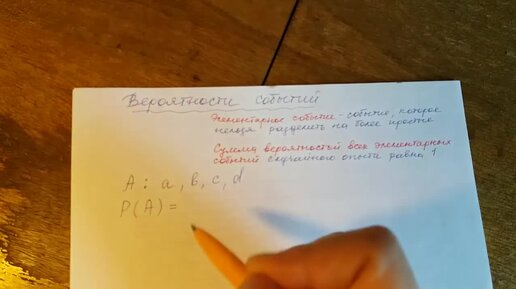 Вероятности событий
Элементарное событие - событие, которое
нельзя разделить на более простые
Сумма вероятностей всех элементарных
событий случайного опыта равна 1
A : a, b, c, d
P(A) =